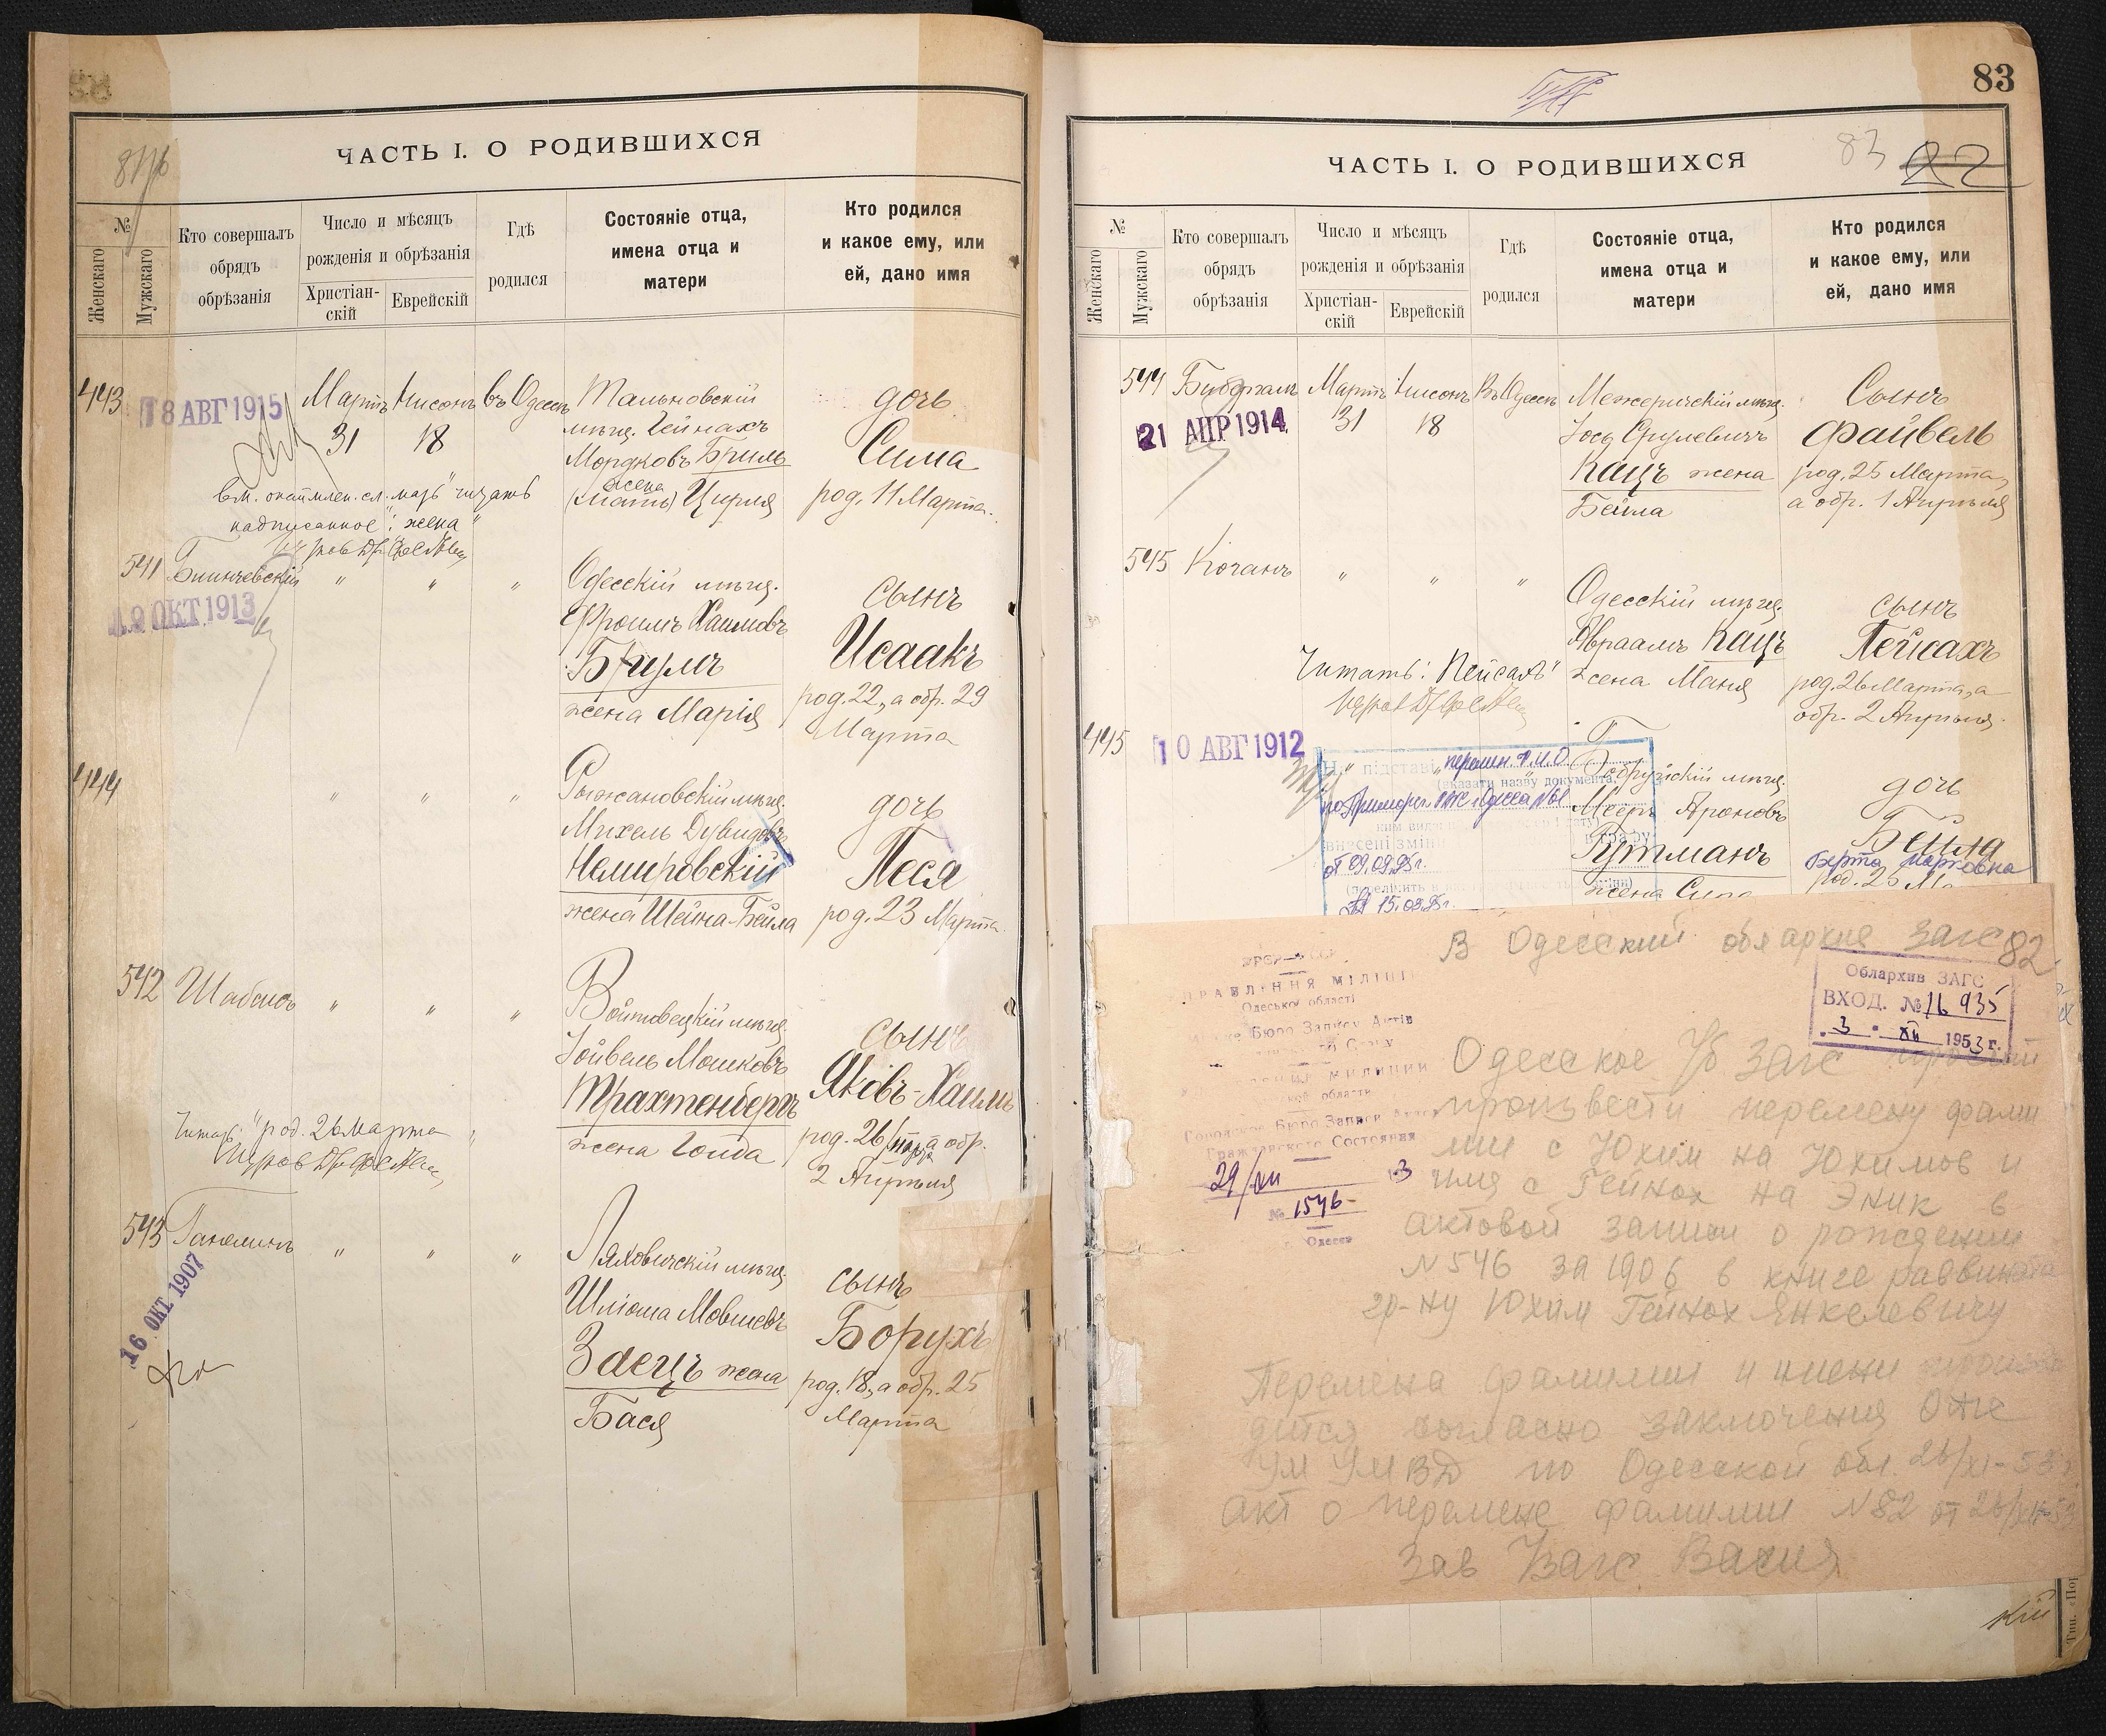 ЧАСТЬ I. О РОДИВШИХСЯ
№
Женскаго
Мужскаго
Кто совершалъ
обрядъ
обрѣзанія
Число и мѣсяцъ
рожденія и обрѣзанія
Христіан-
скій
Еврейскій
Гдѣ
родился
Состояніе отца,
имена отца и
матери
Кто родился
и какое ему, или
ей, дано имя
443
18 АВГ 1915
Мартъ Нисонъ въ Одессѣ
31 18
Тальновскій
мѣщ. Гейнахъ
Мордковъ Бриль
жена
(мать) Цирля
дочь
Сима
род. 11 Марта.
читать
надписанное: "жена"
541 Блинчевскій " " "
ОКТ 1913
Одесскій мѣщ.
Фроимъ Хаимовъ
Бримъ
жена Марія
сынъ
Исаакъ
род. 22, а обр. 29
Марта
444 " " "
Рыжановскій мѣщ.
Михель Дувидовъ
Немировскій
жена Шейна-Бейла
дочь
Песя
род. 23 Марта.
542 Шабсисъ " " "
Войтовецкій мѣщ.
Іойвель Мошковъ
Трахтенбергъ
жена Голда
сынъ
Яковъ-Хаимъ
род. 26 марта, а обр.
2 Апрѣля
Читать: "род. 26 марта"
543 " " "
16 ОКТ 1907
Ляховичскій мѣщ.
Шліома Мовшевъ
Заецъ жена
Бася
сынъ
Борухъ
род. 18, а обр. 25
Марта
83
ЧАСТЬ I. О РОДИВШИХСЯ
83 82
№
Женскаго
Мужскаго
Кто совершалъ
обрядъ
обрѣзанія
Число и мѣсяцъ
рожденія и обрѣзанія
Христіан-
скій
Еврейскій
Гдѣ
родился
Состояніе отца,
имена отца и
матери
Кто родился
и какое ему, или
ей, дано имя
544 Мартъ Нисонъ Въ Одессѣ
21 АПР 1914
31 18
Межеричскій мѣщ.
Іосъ Срулевичъ
Кацъ жена
Бейла
Сынъ
Файвель
род. 25 Марта,
а обр. 1 Апрѣля
545 Коганъ " " "
Одесскій мѣщ.
Авраамъ Кацъ
жена Маня
сынъ
Пейсахъ
род. 26 Марта, а
обр. 2 Апрѣля.
Читать: "Пейсахъ"
445
10 АВГ 1912
На підставі перемен. Ф.И.О.
(вказати назву документа,
Одесса
внесені зміни в графу
от 09.09.95г.
15.09.95г.
Бобруйскій мѣщ.
Мееръ Ароновъ
Гутманъ
жена
дочь
Бейла
Берта Марковна
род. 25
В Одесский облархив ЗАГС
82
Облархив ЗАГС
ВХОД. № 16935
3 XII 1953 г.
Одеської області
Бюро Запису Актів
Городское Бюро Записи Актов
Гражданского Состояния
29/XII
№ 1546
Одесса
Одесское г/б ЗАГС просит
произвести перемену фами
лии с Юхим на Юхимов и
имя с Гейнох на Эник в
актовой записи о рождении
N 546 за 1906 в книге раввината
гр-ну Юхим Гейнох Янкелевичу
Перемена фамилии и имени произво
дится согласно заключения
УМ УМВД по Одесской обл. 26/XI-53г.
Акт о перемене фамилии N 82 от
Зав ЗАГС
кій